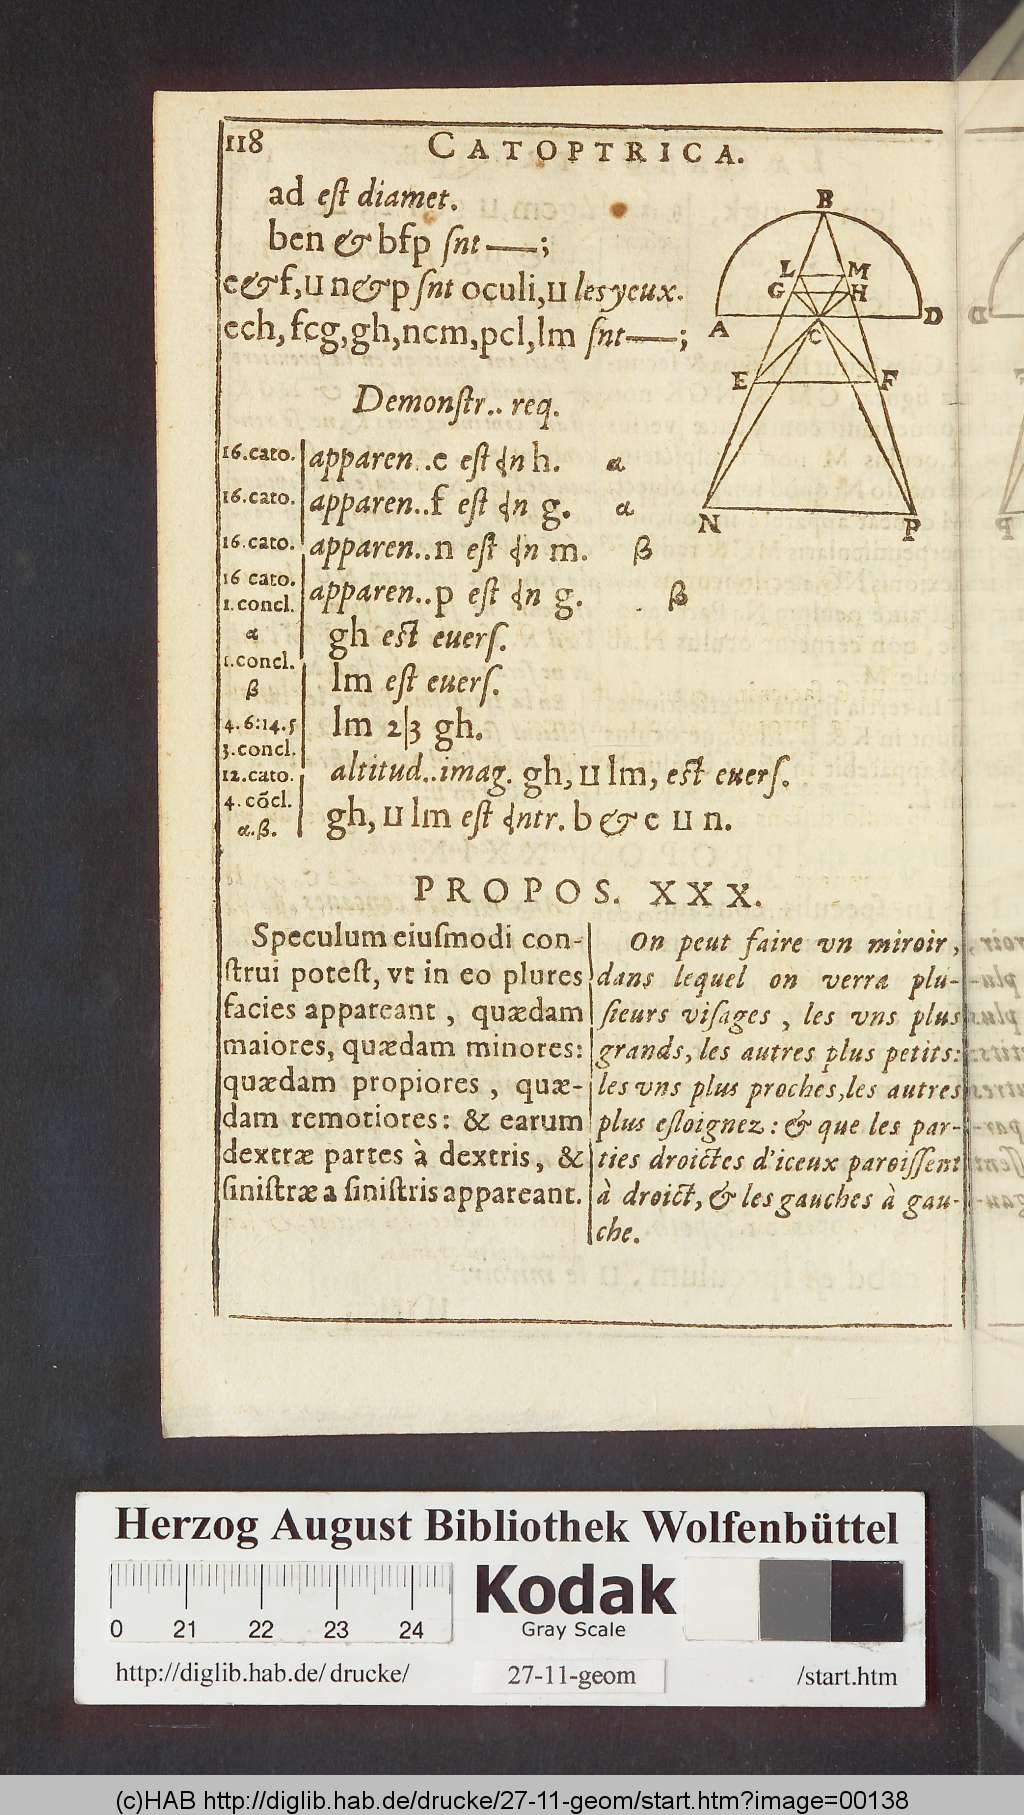 118 CATOPTRICA.
ad est diamet.
ben & bfp snt —;
e&f, ⊔ n&p snt oculi, ⊔ les yeux.
ech, fcg, gh, ncm, pcl, lm snt —;
B
L M
G H
A C D
E F
N P
Demonstr.. req.
16.cato. apparen..e est ɖn h. α
16.cato. apparen..f est ɖn g. α
16.cato. apparen..n est ɖn m. β
16 cato. apparen..p est ɖn g. β
1.concl.
α gh est euers.
1.concl.
β lm est euers.
4.6:14.5 lm 2|3 gh.
3.concl.
12.cato. altitud..imag. gh, ⊔ lm, est euers.
4.cõcl.
α.β. gh, ⊔ lm est ɖntr. b & e ⊔ n.
PROPOS. XXX.
Speculum eiusmodi con-
strui potest, vt in eo plures
facies appareant, quædam
maiores, quædam minores:
quædam propiores, quæ-
dam remotiores: & earum
dextræ partes à dextris, &
sinistræ a sinistris appareant.
On peut faire vn miroir,
dans lequel on verra plu-
sieurs visages, les vns plus
grands, les autres plus petits:
les vns plus proches, les autres
plus esloignez: & que les par-
ties droictes d'iceux paroissent
à droict, & les gauches à gau-
che.
Herzog August Bibliothek Wolfenbüttel
0 21 22 23 24
Kodak
Gray Scale
http://diglib.hab.de/ drucke/ 27-11-geom /start.htm
(c)HAB http://diglib.hab.de/drucke/27-11-geom/start.htm?image=00138